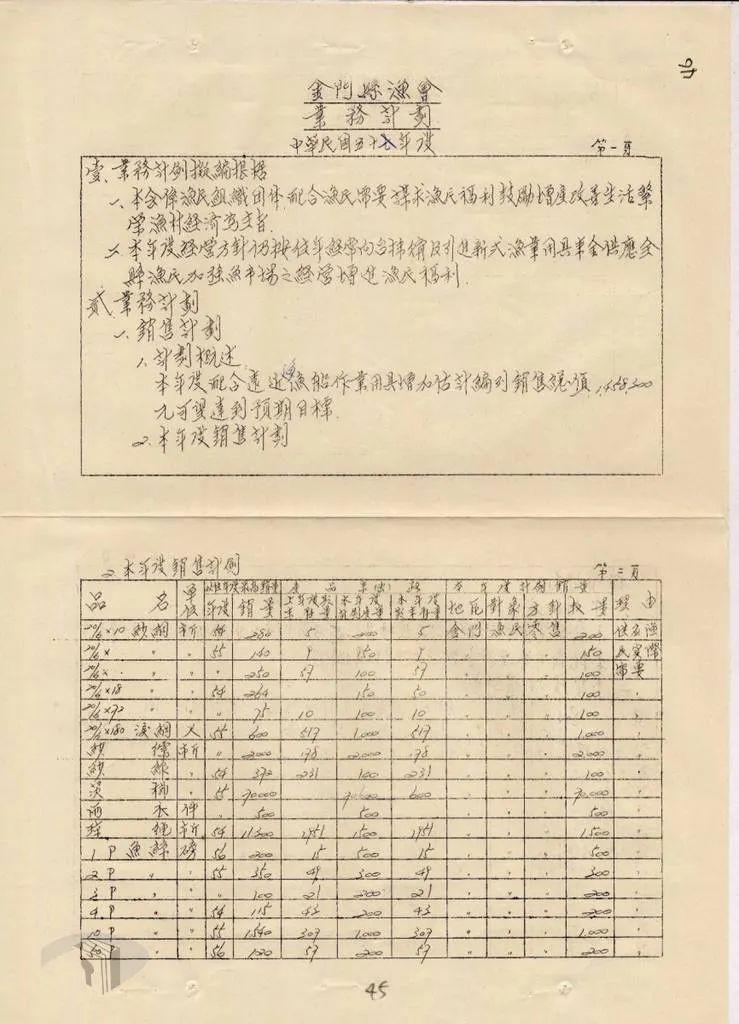 金門縣漁會
業務計劃
中華民國五十七年度
第一頁
壹、業務計劃擬編根据
一、本会係漁民組織团体配合漁民需要謀求漁民福利鼓勵增產改善生活繁
榮漁村經济為主旨
二、本年度經營方針仍按往年經常向台採備及引進新式漁業用具來金供應全
縣漁民加强魚市場之經营增進漁民福利
貳業務計劃
一、銷售計劃
1.計劃概述
本年度配合遠近漁船作業用具增加估計編列銷售總額1,458,300
元可望達到預期目標
2.本年度銷售計劃
2.本年度銷售計劃
第二頁
品名 單位 年度 銷量 地区 對象 方針 数量 理由
20/6×10 紗網 斤 280 5 200 5 金門 漁民 零售 200 供应漁
20/6× 〃 〃 55 140 9 150 9 〃 〃 〃 150 民实際
20/6× 〃 〃 〃 250 57 100 57 〃 〃 〃 100 需要
20/6×18 〃 54 264 150 50 〃 〃 〃 100 〃
〃 〃 75 10 100 10 〃 〃 〃 100 〃
20/6×180 滾網 55 600 517 1,000 517 〃 〃 〃 1,000 〃
斤 〃 2000 178 2,000 178 〃 〃 〃 2,000 〃
紗線 〃 54 372 231 100 231 〃 〃 〃 100 〃
〃 55 70000 600 〃 〃 〃 70,000 〃
雨衣 件 〃 500 500 〃 〃 〃 500 〃
繩 斤 54 11300 1951 1500 1951 〃 〃 〃 1500 〃
1 P 漁絲 磅 56 200 15 500 15 〃 〃 〃 500 〃
2 P 〃 〃 55 350 49 300 49 〃 〃 〃 300 〃
3 P 〃 〃 〃 100 21 200 21 〃 〃 〃 200 〃
4 P 〃 〃 54 115 43 200 43 〃 〃 〃 200 〃
10 P 〃 〃 55 1540 309 1,000 309 〃 〃 〃 1,000 〃
50 P 〃 〃 56 120 57 200 57 〃 〃 〃 200 〃
45